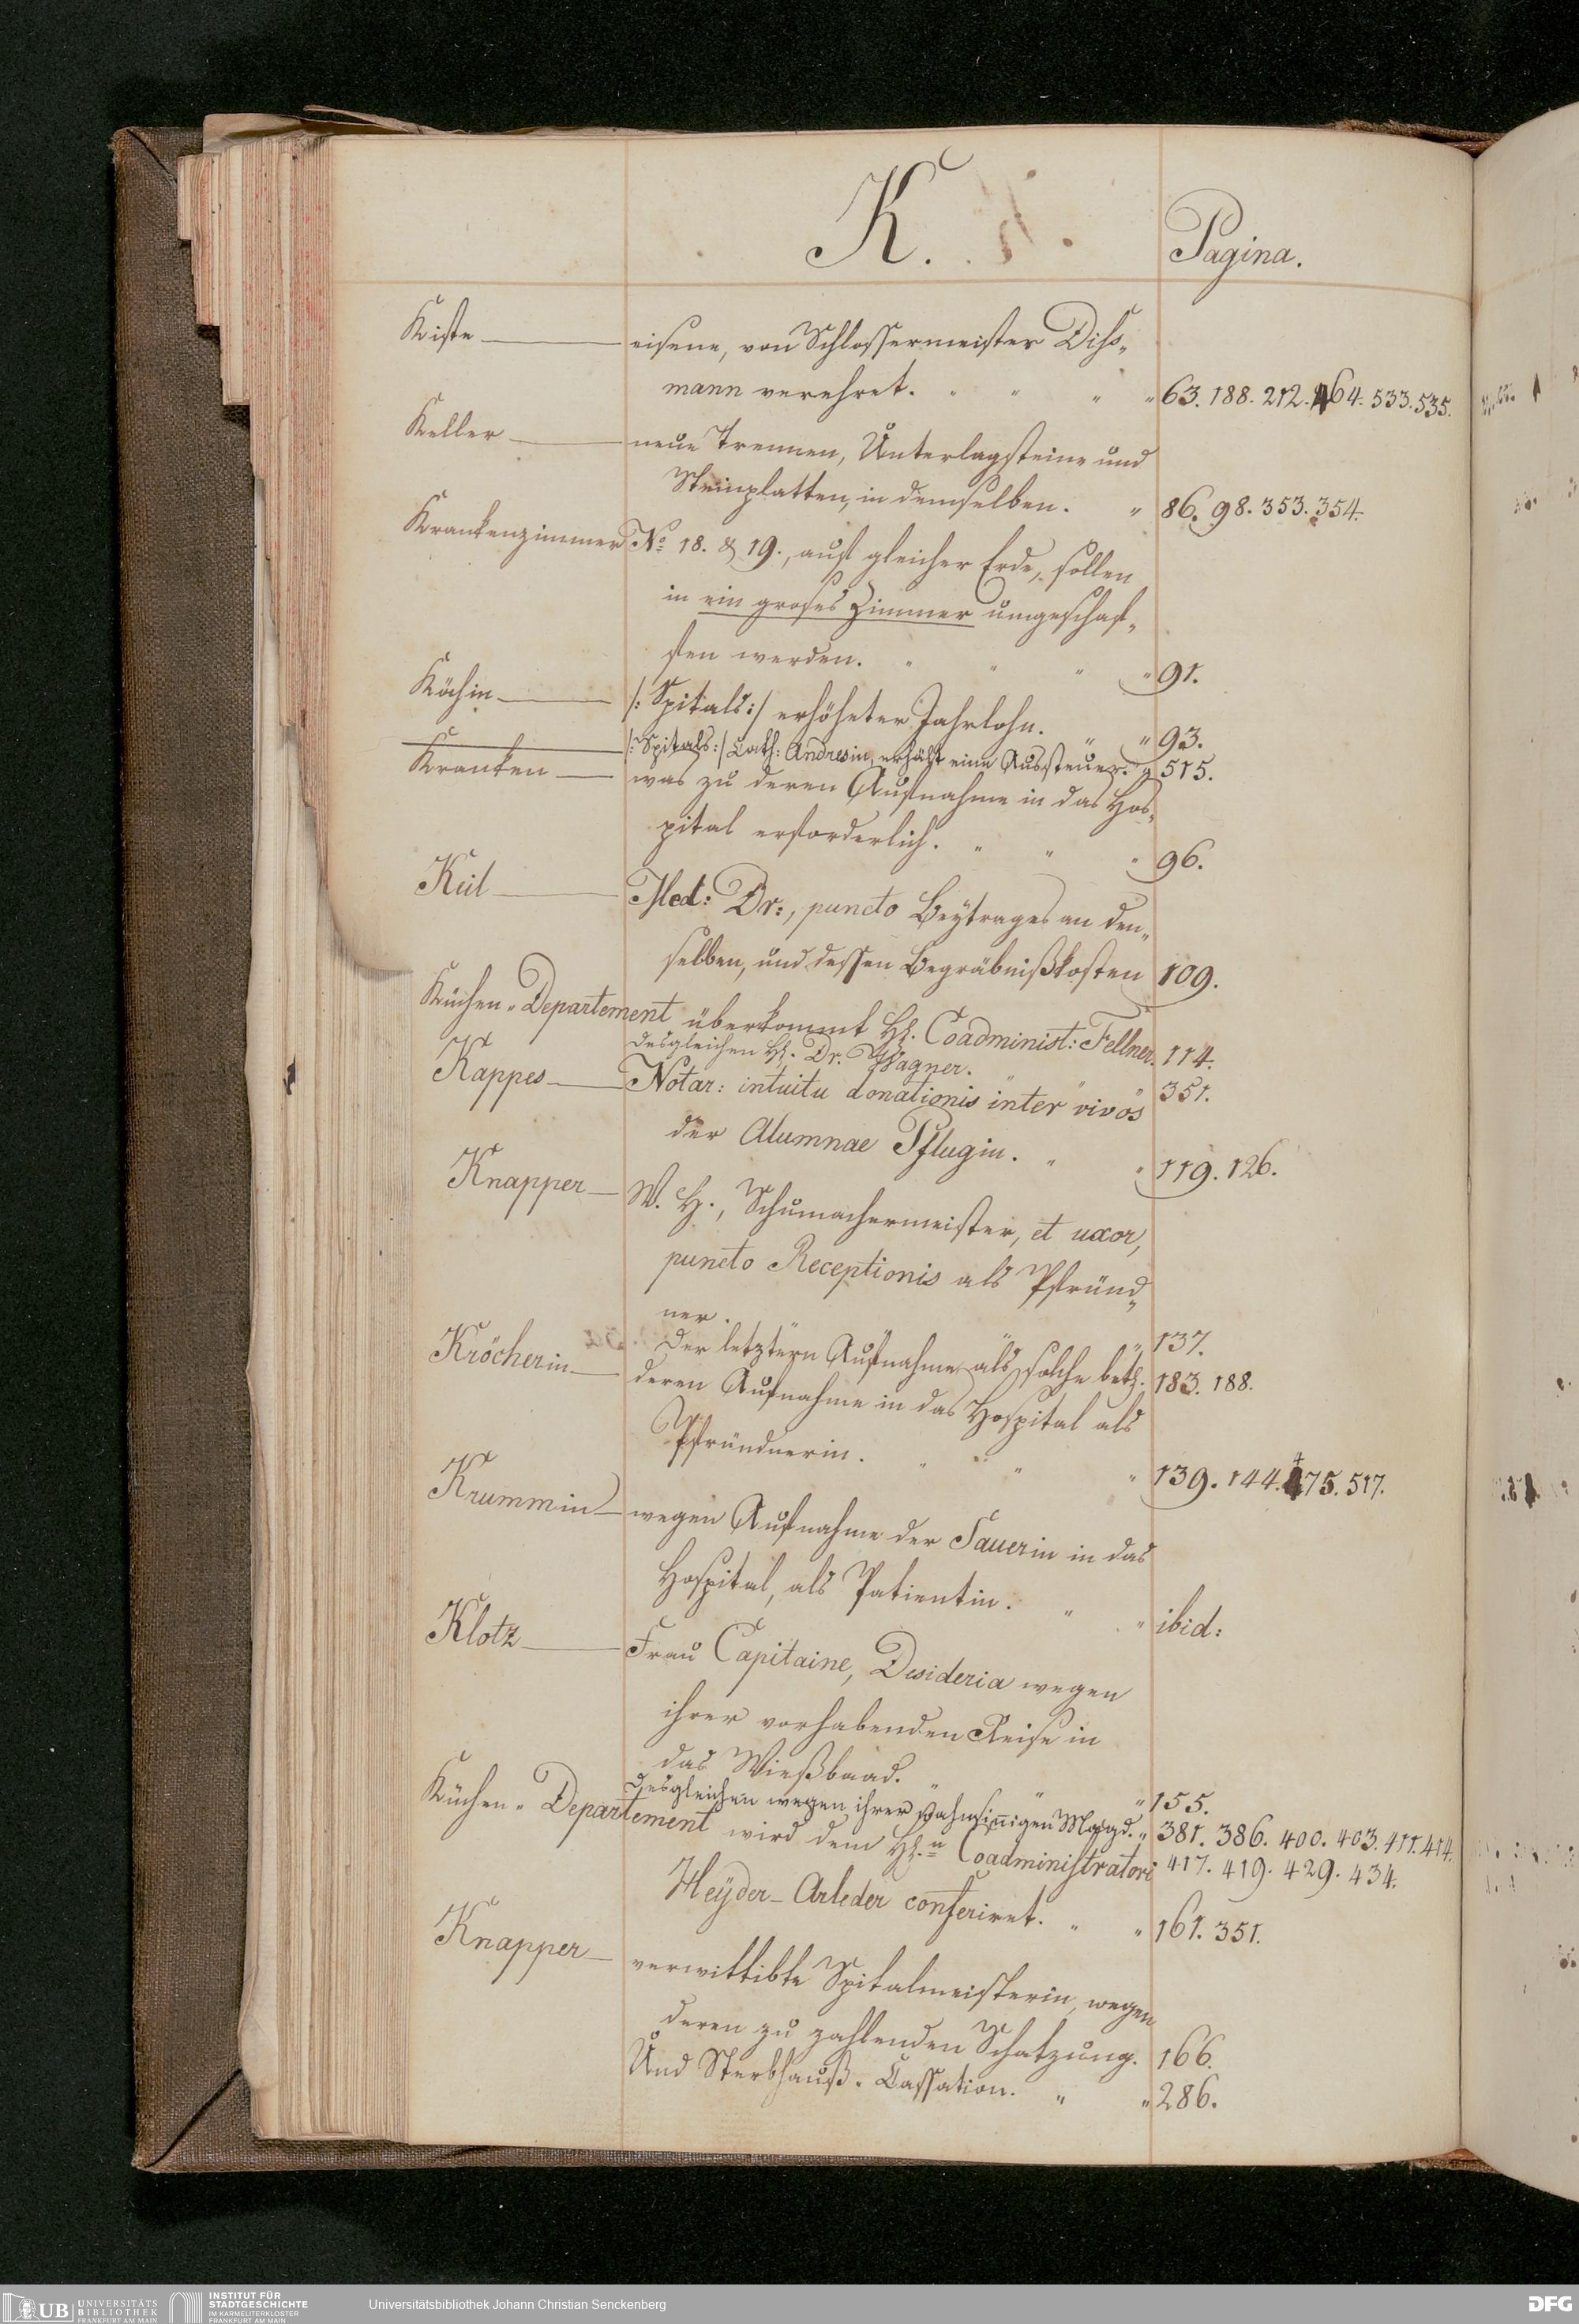 K.
Pagina.
Kiste — eisene, von Schlossermeister Diss„
mann verehret. " " " " 63. 188. 212. 464. 533. 535.
Keller — neue Trennen, Unterlagsteine und
Steinplatten, in demselben. " 86. 98. 353. 354.
Krankenzimmer No 18. & 19., auf gleicher Erde, sollen
in ein groses Zimmer umgeschaf„
fen werden. " " " " 91.
Köchin — /: Spitals :/ erhöheter Jahrlohn. " " 93.
— /: Spitals :/ Cath: Andresin, erhält eine Aussteuer. " 515.
Kranken — was zu deren Aufnahme in das Hos„
pital erforderlich. " " " 96.
Keil — Med: Dr:, puncto Beytrages an den„
selben, und dessen Begräbnißkosten 109.
Küchen„Departement überkommt HH. Coadminist: Fellner. 114.
desgleichen HH. Dr. Wagner. " " " 351.
Kappes — Notar: intuitu donationis inter vivos
der Alumnae Pflugin. " " 119. 126.
Knapper — W. H., Schumachermeister, et uxor,
puncto Receptionis als Pfründ„
ner. " " " " 137.
der letztern Aufnahme als solche betr. 183. 188.
Kröcherin — deren Aufnahme in das Hospital als
Pfründnerin. " " " 139. 144. 475. 517.
Krummin — wegen Aufnahme der Sauerin in das
Hospital, als Patientin. " " ibid:
Klotz — Frau Capitaine, Desideria wegen
ihrer vorhabenden Reise in
das Wießbaad. " " " 155.
desgleichen wegen ihrer wahnsinigen Magd. " 381. 386. 400. 403. 411. 414.
417. 419. 429. 434.
Küchen„Departement wird dem HH.n Coadministratori
Heÿder-Arleder conferiret. " " 161. 351.
Knapper — verwittibte Spitalmeisterin, wegen
deren zu zahlenden Schatzung. 166.
Und Sterbhauß„Cassation. " " 286.
UB UNIVERSITÄTS
BIBLIOTHEK
FRANKFURT AM MAIN
INSTITUT FÜR
STADTGESCHICHTE
IM KARMELITERKLOSTER
FRANKFURT AM MAIN
Universitätsbibliothek Johann Christian Senckenberg
DFG